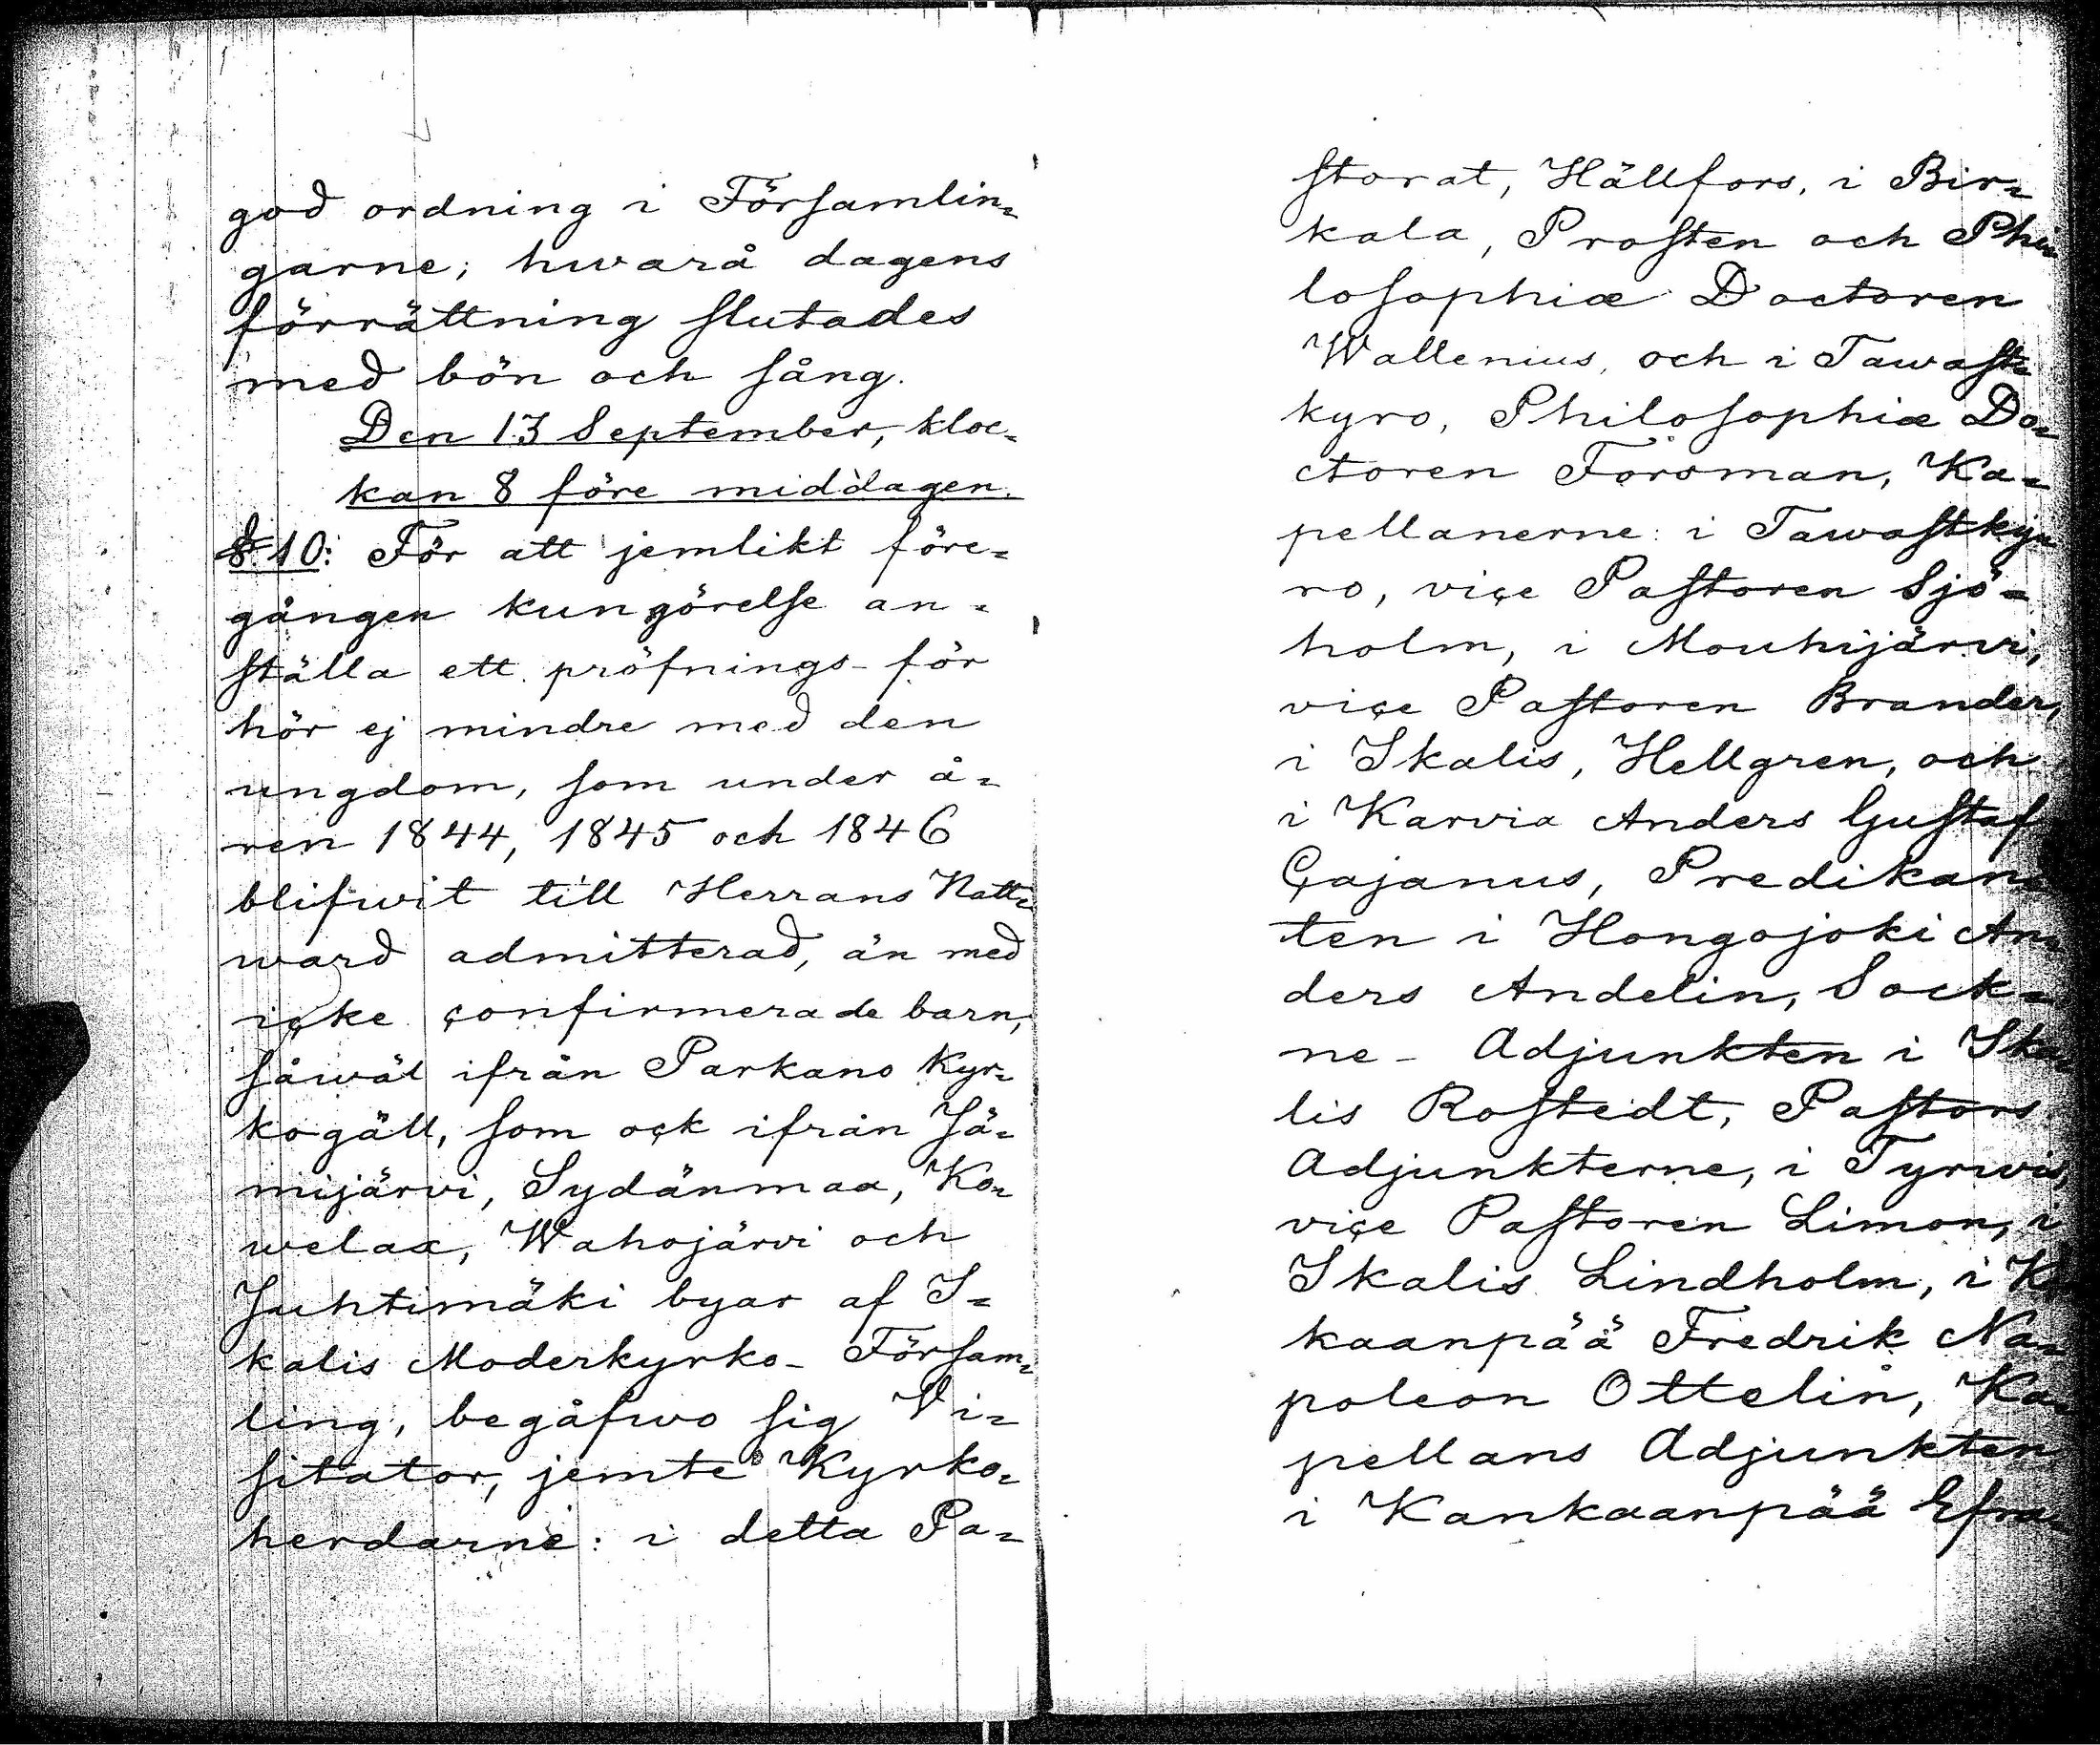 god ordning i Församlin=
garne; hwarå dagens
förrättning slutades
med bön och sång.
Den 13 September, kloc=
kan 8 före middagen.
§ 10: För att jemlikt före=
gången kungörelse an=
ställa ett pröfnings- för
hör ej mindre med den
ungdom, som under å=
ren 1844, 1845 och 1846
blifwit till Herrans Natt=
ward admitterad, än med
icke confirmerade barn,
såwäl ifrån Parkano Kyr=
kogäll, som ock ifrån Jä=
mijärvi, Sydänmaa, Ko=
welax, Wahojärvi och
Juhtimäki byar af I=
kalis Moderkyrko- Försam=
ling, begåfwo sig Vi=
sitator, jemte Kyrko=
herdarne: i detta Pa=
storat, Hällfors, i Bir=
kala, Prosten och Phi=
losophiæ Doctoren
Wallenius, och i Tawast=
kyro, Philosophiæ Do=
ctoren Forsman, Ka=
pellanerne: i Tawastky=
ro, vice Pastoren Sjö=
holm, i Mouhijärvi,
vice Pastoren Brander,
i Ikalis, Hellgren, och
i Karvia Anders Gustaf
Cajanus, Predikan=
ten i Hongojoki An=
ders Andelin, Sock=
ne- Adjunkten i Ika=
lis Rostedt, Pastors
Adjunkterne, i Tyrwis,
vice Pastoren Limon, i
Ikalis Lindholm, i
kaanpää Fredrik Na=
poleon Ottelin, Ka=
pellans Adjunkten
i Kankaanpää Efra=